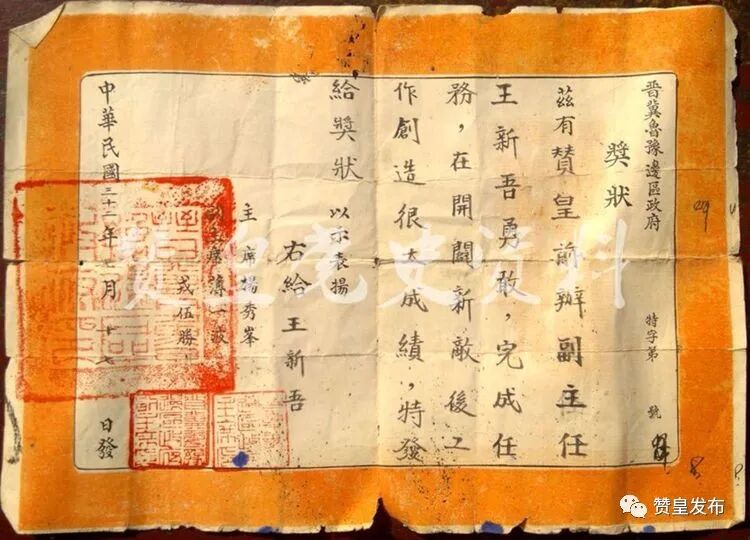 晋冀魯豫邊區政府 特字第 號
獎狀
茲有贊皇前辦副主任
王新吾勇敢，完成任
務，在開闢新敵後工
作創造很大成績，特發
給獎狀 以示表揚
右給王新吾
主席楊秀峯
副主席薄一波
戎伍勝
中華民國三十二年 月 十七 日發
贊皇党史资料
赞皇发布